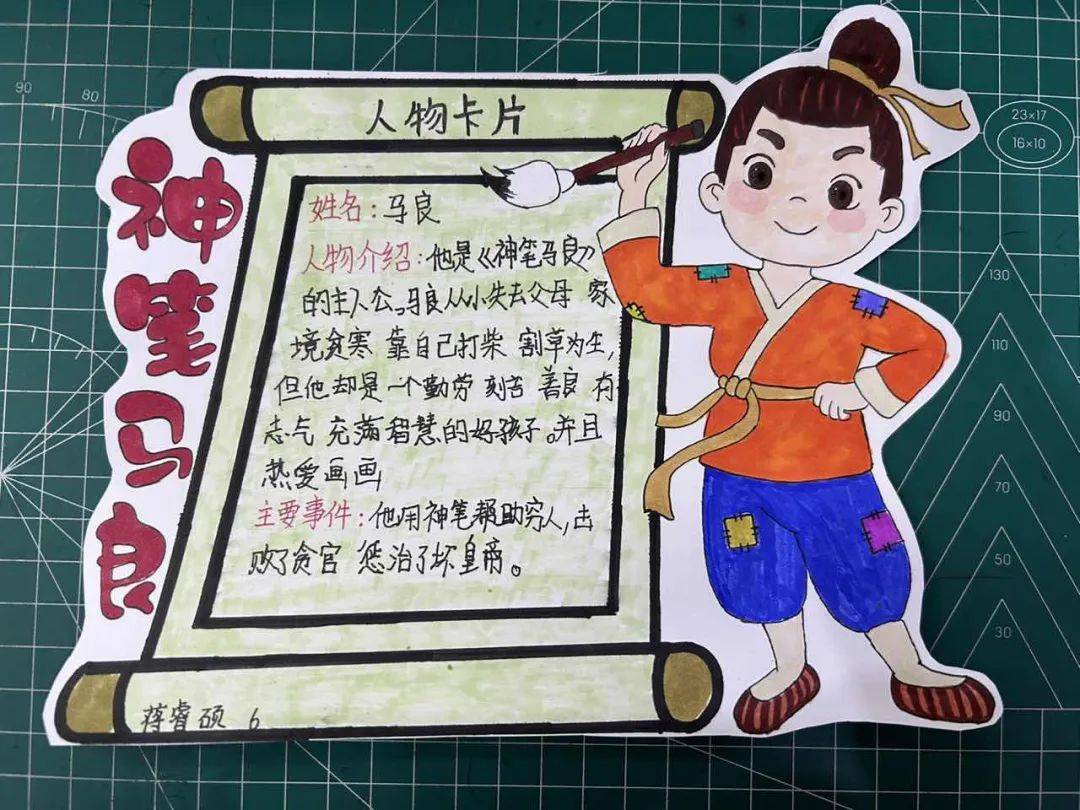 人物卡片
神笔马良
姓名：马良
人物介绍：他是《神笔马良》
的主人公。马良从小失去父母 家
境贫寒 靠自己打柴 割草为生，
但他却是一个勤劳 刻苦 善良 有
志气 充满智慧的好孩子。并且
热爱画画
主要事件：他用神笔帮助穷人，击
败了贪官 惩治了坏皇帝。
蒋睿硕 6
90
80
23×17
16×10
130
110
90
70
50
30